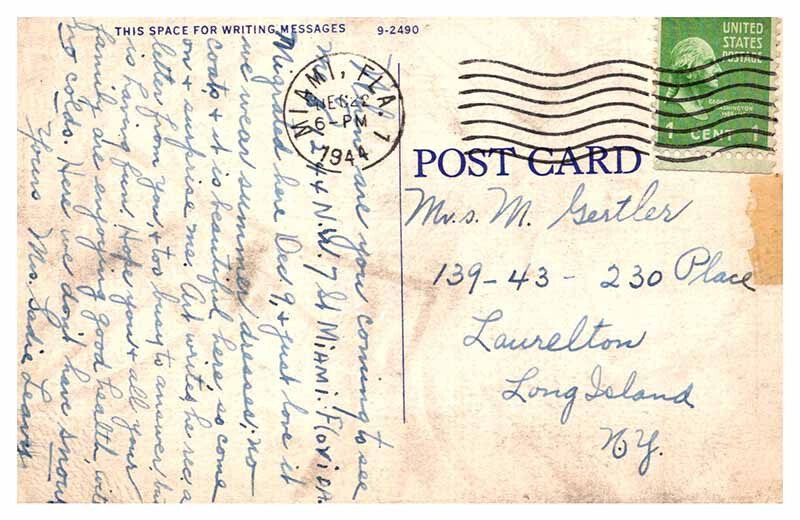 THIS SPACE FOR WRITING MESSAGES 9-2490
are you coming to see
44 N.W. 7 St Miami. Florida.
Migrated here Dec 9, & just love it
we wear summer dresses, no
coats, & it is beautiful here, so come
on & surprise me. Art writes he rec. a
letter from you, & too busy to answer, but
is having fun. Hope you & all your
family are enjoying good health, with
no colds. Here we don't have snow
Yours Mrs. Sadie Leavy
MIAMI, FLA. 1
22
6-PM
1944
UNITED
STATES
POSTAGE
1 CENT 1
POST CARD
Mrs. M. Gertler
139-43 - 230 Place
Laurelton
Long Island
N.Y.